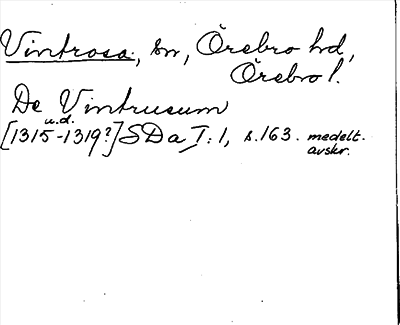 Vintrosa, sn, Örebro hd,
Örebro l.
De Vintrusum
u.d.
[1315-1319?] SDa I:1, s.163. medelt.
avskr.